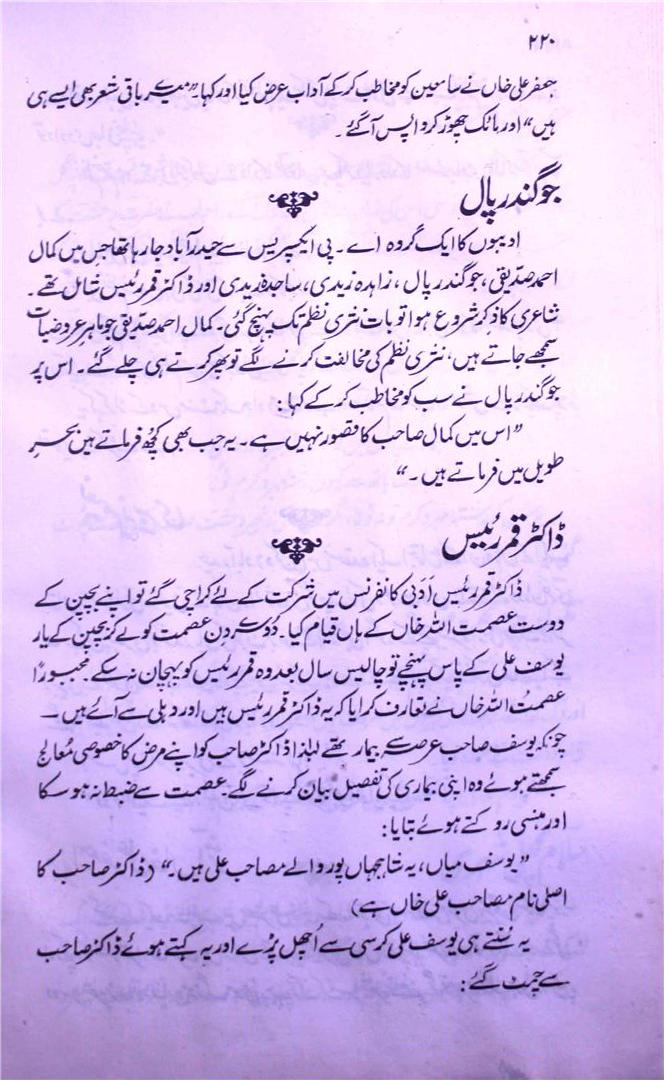 ۲۲۰
جعفر علی خاں نے سامعین کو مخاطب کر کے آداب عرض کیا اور کہا۔ "میرے باقی شعر بھی ایسے ہی
ہیں" اور مائک چھوڑ کر واپس آگئے۔
جوگندر پال
ادیبوں کا ایک گروہ اے۔ پی ایکسپریس سے حیدرآباد جا رہا تھا جس میں کمال
احمد صدیقی، جوگندر پال، زاہدہ زیدی، ساجدہ زیدی اور ڈاکٹر قمر رئیس شامل تھے۔
شاعری کا ذکر شروع ہوا تو بات نثری نظم تک پہنچ گئی۔ کمال احمد صدیقی جو ماہر عروضیات
سمجھے جاتے ہیں، نثری نظم کی مخالفت کرنے لگے تو پھر کرتے ہی چلے گئے۔ اس پر
جوگندر پال نے سب کو مخاطب کر کے کہا:
"اس میں کمال صاحب کا قصور نہیں ہے۔ یہ جب بھی کچھ فرماتے ہیں بحرِ
طویل میں فرماتے ہیں۔"
ڈاکٹر قمر رئیس
ڈاکٹر قمر رئیس ادبی کانفرنس میں شرکت کے لئے کراچی گئے تو اپنے بچپن کے
دوست عصمت اللہ خاں کے ہاں قیام کیا۔ دوسرے دن عصمت کو لے کر بچپن کے یار
یوسف علی کے پاس پہنچے تو چالیس سال بعد وہ قمر رئیس کو پہچان نہ سکے۔ مجبوراً
عصمت اللہ خاں نے تعارف کرایا کہ یہ ڈاکٹر قمر رئیس ہیں اور دہلی سے آئے ہیں۔
چونکہ یوسف صاحب عرصہ سے بیمار تھے لہٰذا ڈاکٹر صاحب کو اپنے مرض کا خصوصی معالج
سمجھتے ہوئے وہ اپنی بیماری کی تفصیل بیان کرنے لگے۔ عصمت سے ضبط نہ ہو سکا
اور ہنسی روکتے ہوئے بتایا:
"یوسف میاں، یہ شاہجہاں پور والے مصاحب علی ہیں۔" (ڈاکٹر صاحب کا
اصلی نام مصاحب علی خاں ہے)
یہ سُنتے ہی یوسف علی کرسی سے اُچھل پڑے اور یہ کہتے ہوئے ڈاکٹر صاحب
سے چمٹ گئے: